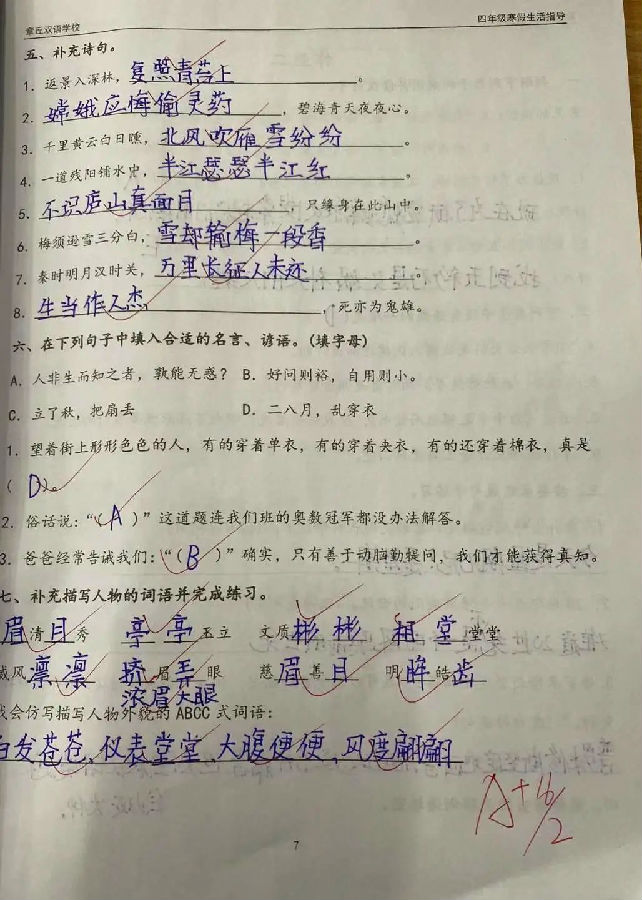 章丘双语学校 四年级寒假生活指导
五、补充诗句。
1. 返景入深林，复照青苔上。
2. 嫦娥应悔偷灵药，碧海青天夜夜心。
3. 千里黄云白日曛，北风吹雁雪纷纷。
4. 一道残阳铺水中，半江瑟瑟半江红。
5. 不识庐山真面目，只缘身在此山中。
6. 梅须逊雪三分白，雪却输梅一段香。
7. 秦时明月汉时关，万里长征人未还。
8. 生当作人杰，死亦为鬼雄。
六、在下列句子中填入合适的名言、谚语。(填字母)
A. 人非生而知之者，孰能无惑？ B. 好问则裕，自用则小。
C. 立了秋，把扇丢 D. 二八月，乱穿衣
1. 望着街上形形色色的人，有的穿着单衣，有的穿着夹衣，有的还穿着棉衣，真是
( D
2. 俗话说：“(A)”这道题连我们班的奥数冠军都没办法解答。
3. 爸爸经常告诫我们：“(B)”确实，只有善于动脑勤提问，我们才能获得真知。
七、补充描写人物的词语并完成练习。
眉清目秀 亭亭玉立 文质彬彬 相堂堂堂
威风凛凛 挤眉弄眼 慈眉善目 明眸皓齿
浓眉大眼
我会仿写描写人物外貌的 ABCC 式词语：
白发苍苍、仪表堂堂、大腹便便、风度翩翩
A+ 16/2
7